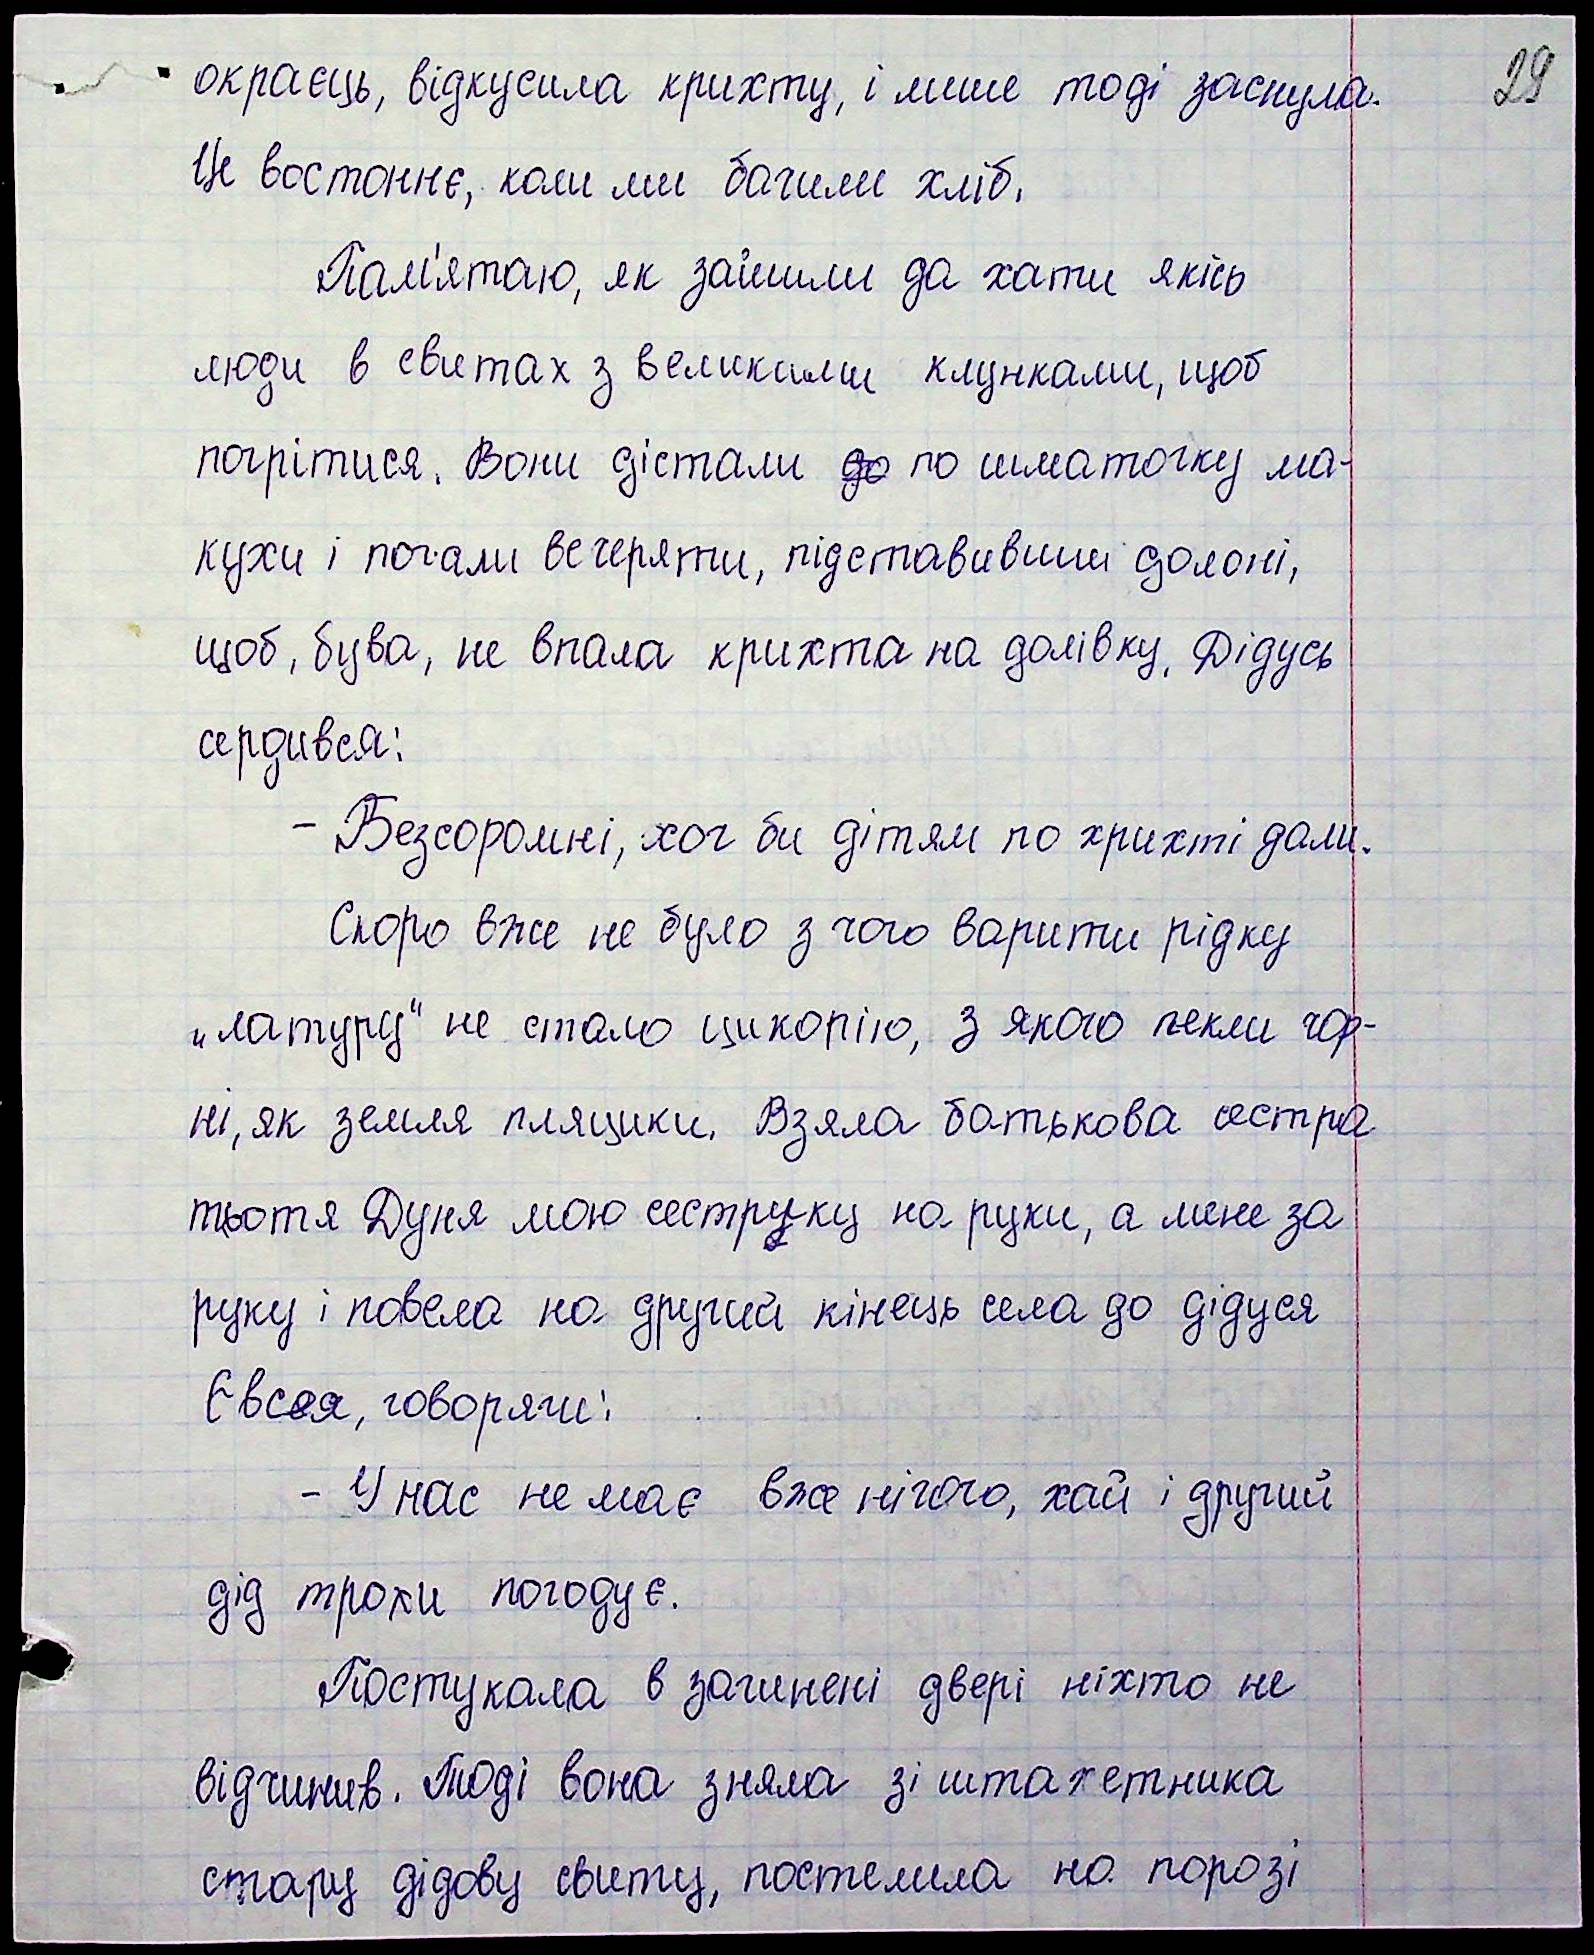 29
окраєць, відкусила крихту, і лише тоді заснула.
Це востоннє, коли ми бачили хліб.
Пам'ятаю, як зайшли да хати якісь
люди в свитах з великими клунками, щоб
погрітися. Вони дістали до по шматочку ма-
кухи і почали вечеряти, підставивши долоні,
щоб, бува, не впала крихта на долівку. Дідусь
сердився:
- Безсоромні, хоч би дітям по крихті дали.
Скоро вже не було з чого варити рідку
„латуру“ не стало цикорію, з якого пекли чор-
ні, як земля пляцики. Взяла батькова сестра
тьотя Дуня мою сеструку на руки, а мене за
руку і повела на другий кінець села до дідуся
Євсея, говорячи:
- У нас немає вже нічого, хай і другий
дід трохи погодує.
Постукала в зачинені двері ніхто не
відчинив. Тоді вона зняла зі штахетника
стару дідову свиту, постелила на порозі